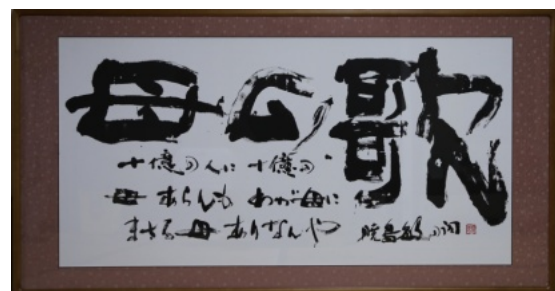 母の歌
十億の人に 十億の
母 あらんも わが母に
まさる母 ありなんや 暁烏敏の詞